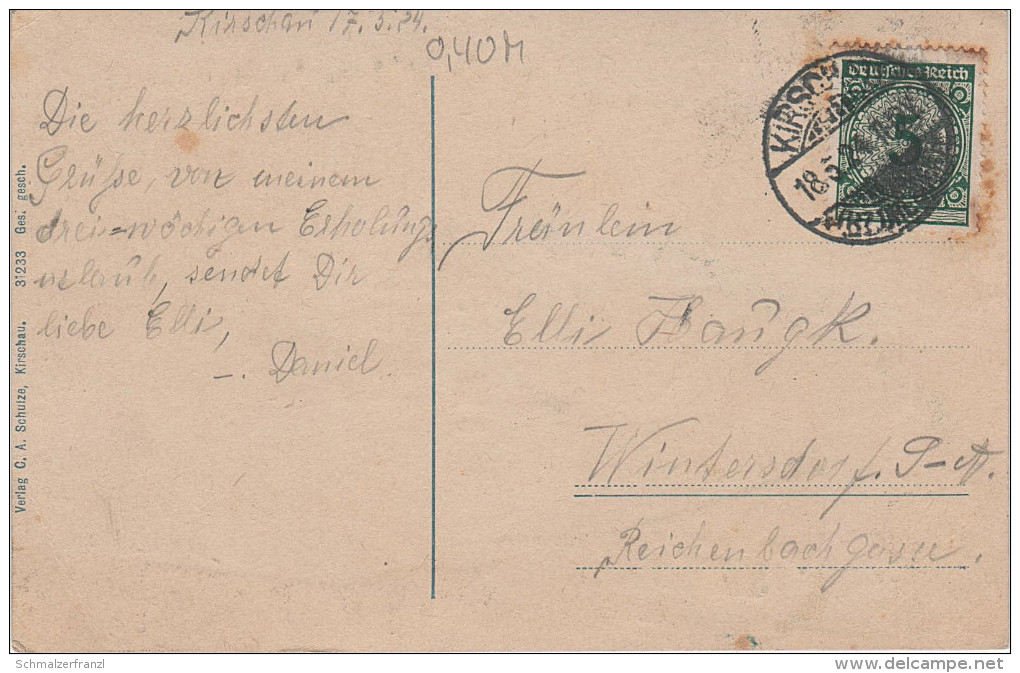 Kirschau 17.5.24.
0,40M
Die herzlichsten
Grüße, von meinem
drei=wöchigen Erholungs
urlaub, sendet Dir
liebe Elli,
–. Daniel.
Fräulein
Elli Haugk.
Wintersdorf. S-A.
Reichenbachgasse.
Deutsches Reich
5
KIRSCH
18.5.24
Verlag C. A. Schulze, Kirschau. 31233 Ges. gesch.
Schmalzerfranzl
www.delcampe.net